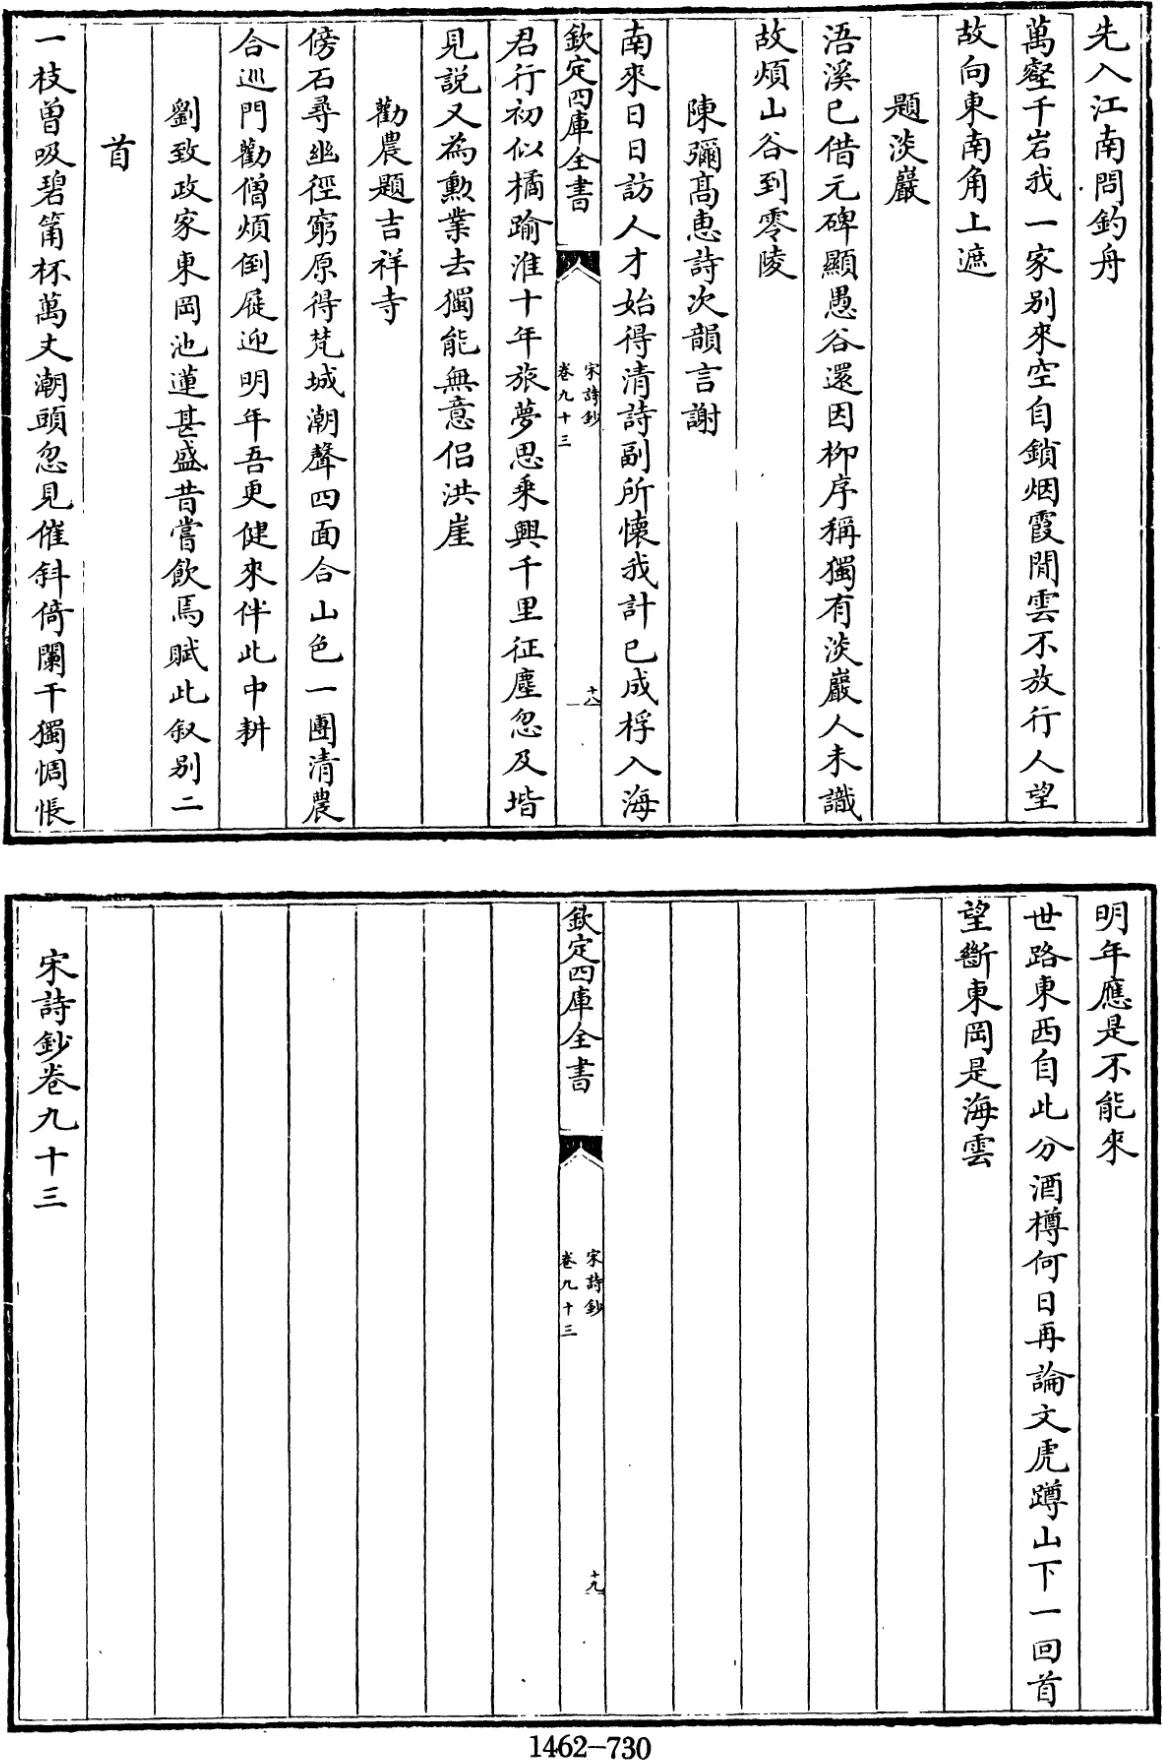 先入江南問釣舟
萬壑千岩我一家别來空自鎖烟霞閒雲不放行人望
故向東南角上遮
題淡巖
浯溪已借元碑顯愚谷還因柳序稱獨有淡巖人未識
故煩山谷到零陵
陳彌髙惠詩次韻言謝
南來日日訪人才始得清詩副所懷我計已成桴入海
欽定四庫全書
宋詩鈔
卷九十三
十八
君行初似橘踰淮十年旅夢思乘興千里征塵忽及堦
見説又為勲業去獨能無意侣洪崖
勸農題吉祥寺
傍石尋幽徑窮原得梵城潮聲四面合山色一團清農
合巡門勸僧煩倒屣迎明年吾更健來伴此中耕
劉致政家東岡池蓮甚盛昔嘗飲焉賦此叙别二
首
一枝曾吸碧筩杯萬丈潮頭忽見催斜倚闌干獨惆悵
明年應是不能來
世路東西自此分酒樽何日再論文虎蹲山下一回首
望斷東岡是海雲
欽定四庫全書
宋詩鈔
卷九十三
十九
宋詩鈔卷九十三
1462-730